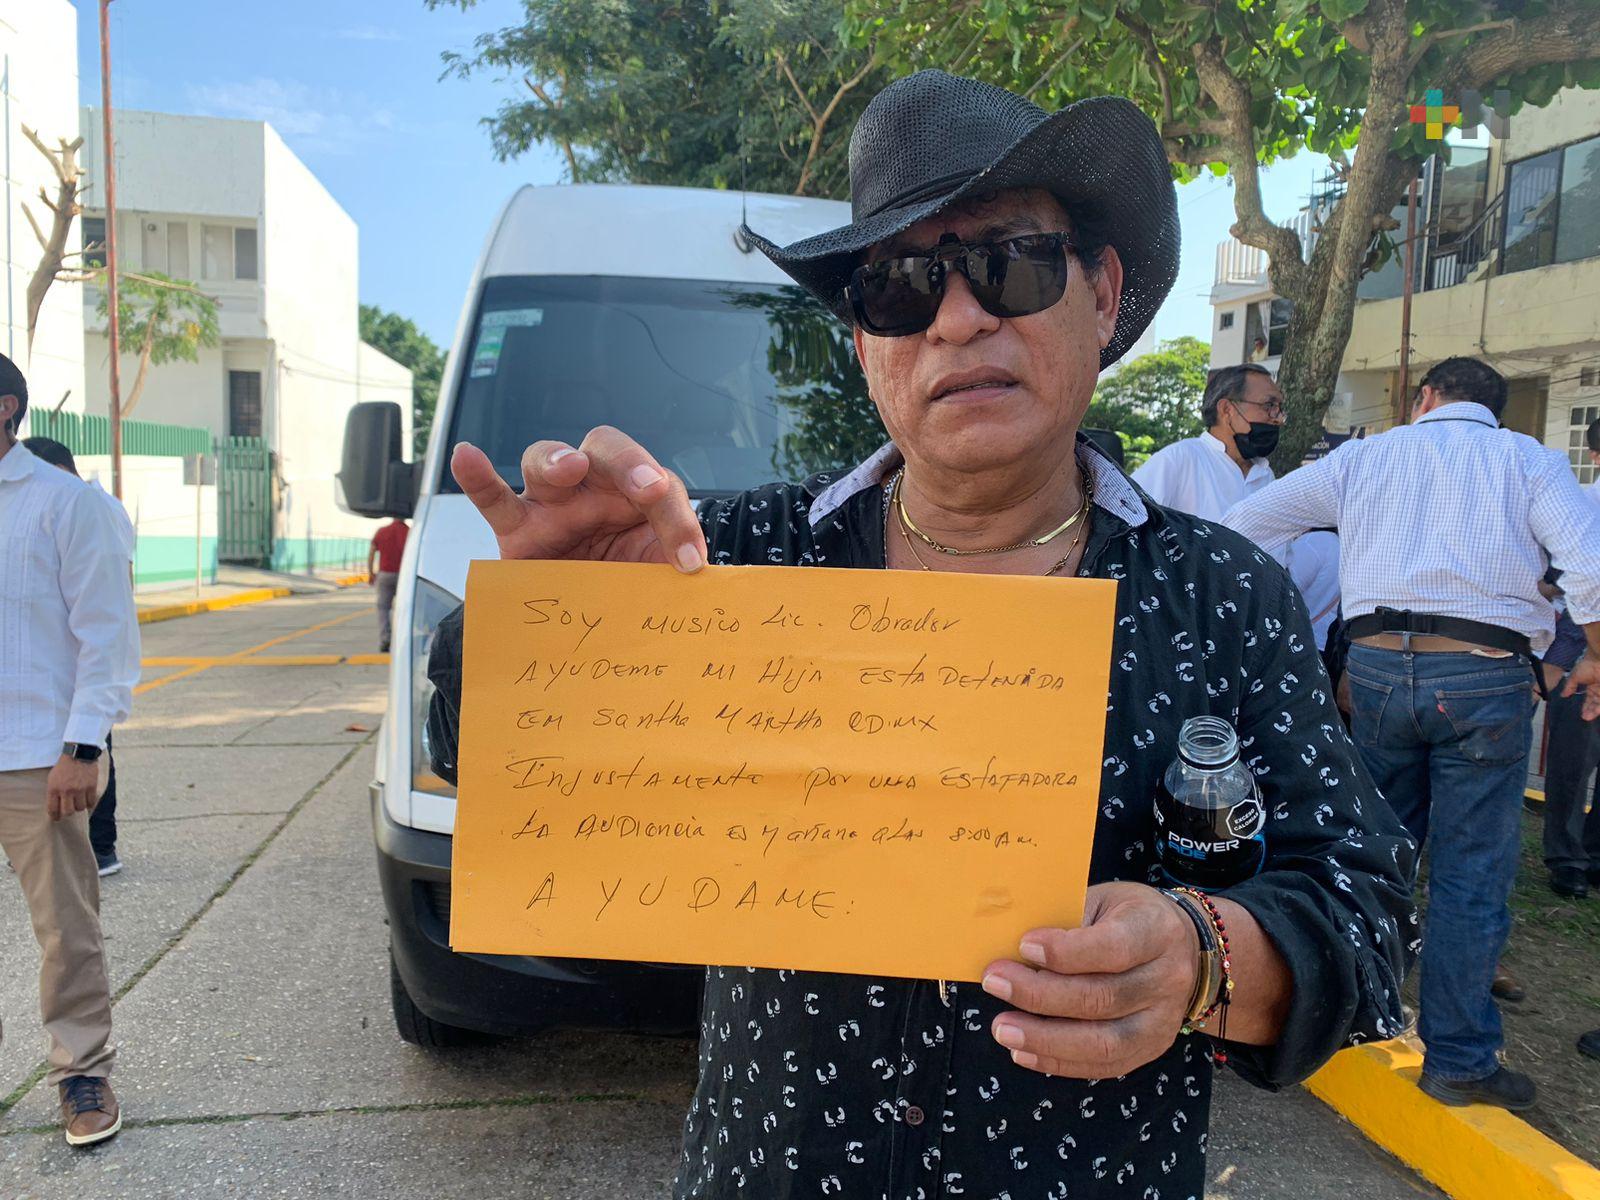 Soy musico Lic. Obrador
AYUDEME MI HijA ESTA DETENIDA
EM Santha MARTHA CDMX
INJUSTAMENTE por UNA ESTAFADORA
LA AUDIencia ES Mañana A LAS 8:00 AM.
AYUDAME:
POWER
ADE
EXCESO
CALORÍAS
+N